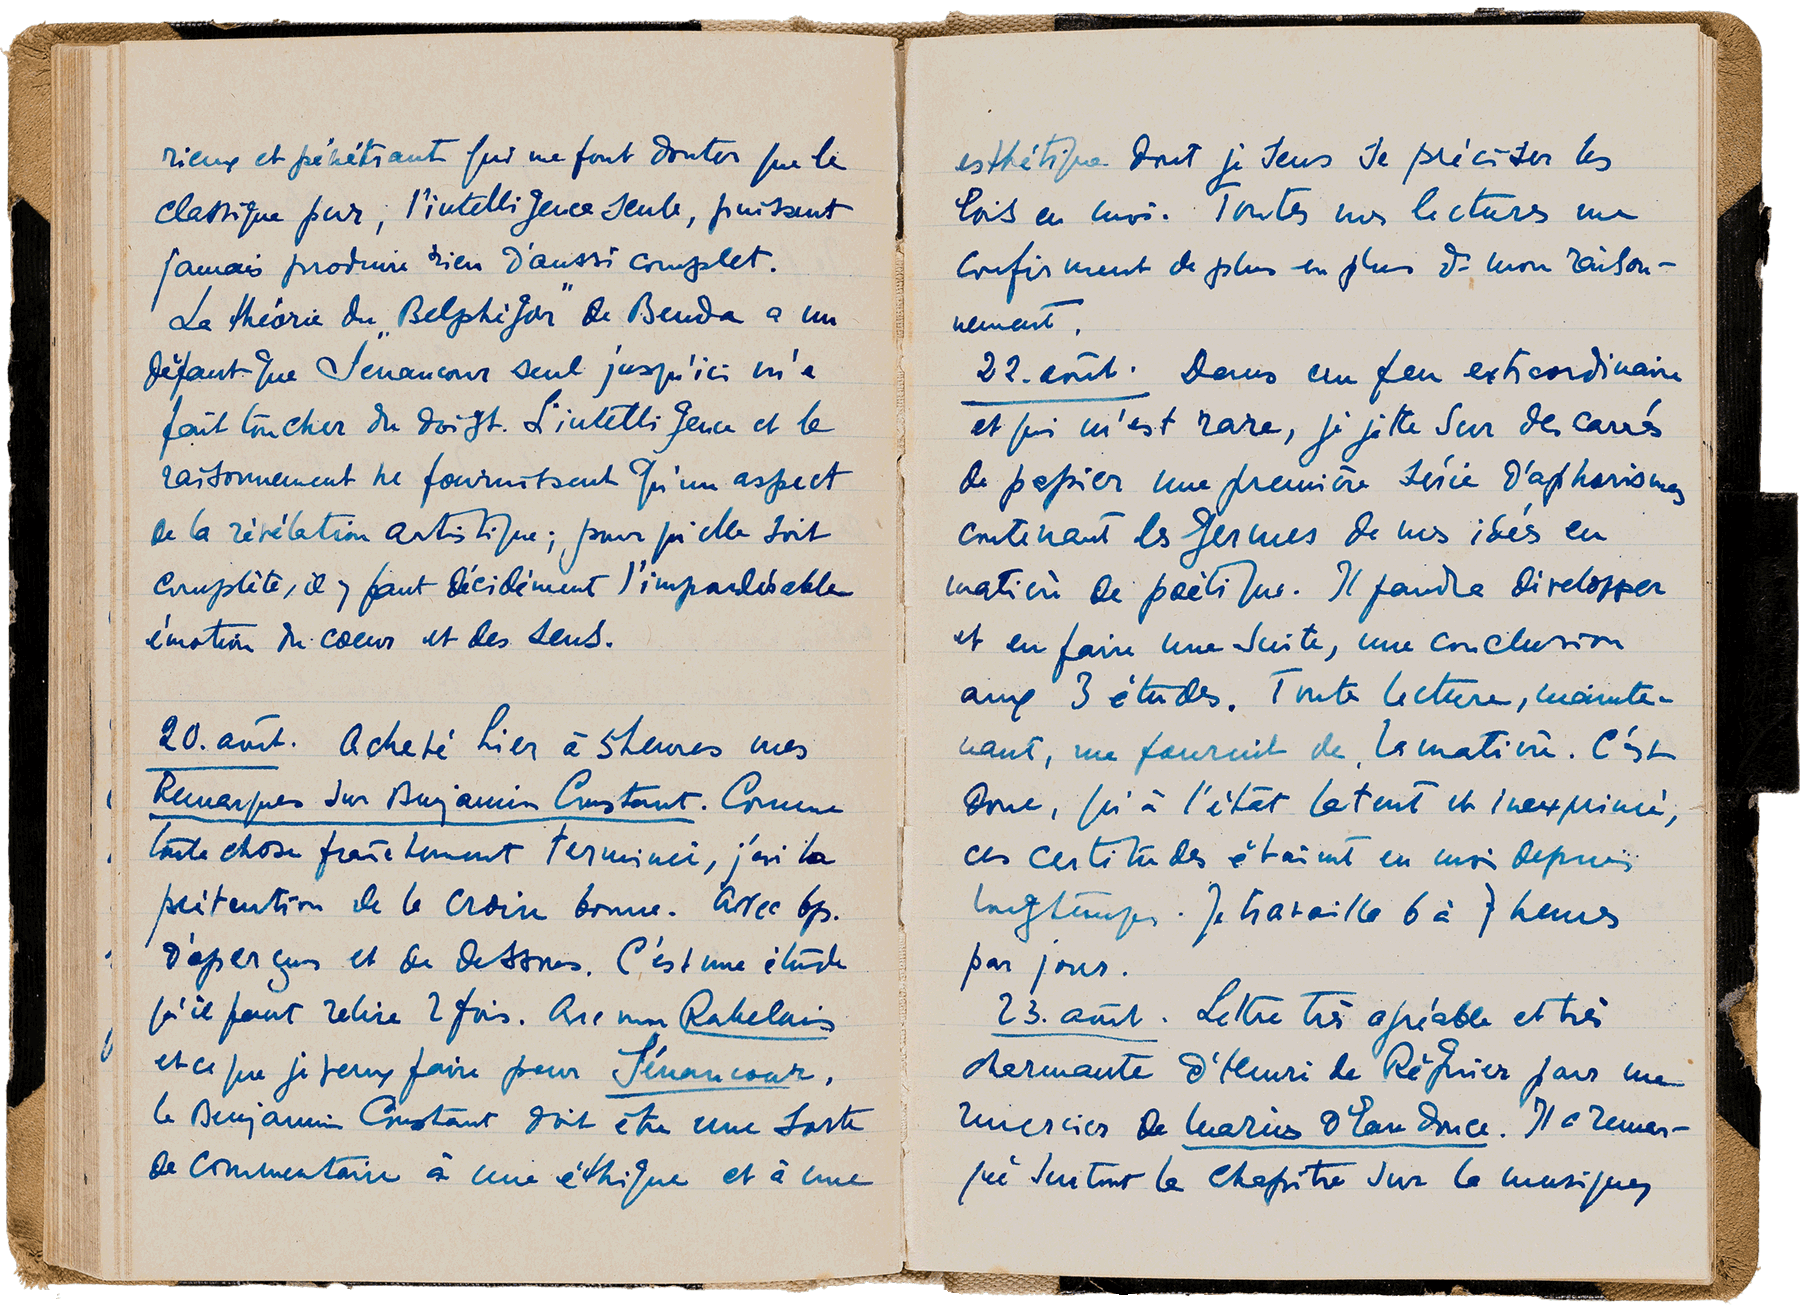 rieux et pénétrant qui me font douter que le
classique pur, l'intelligence seule, puissent
jamais produire rien d'aussi complet.
La théorie du „Belphégor" de Benda a un
défaut que Sénancour seul jusqu'ici m'a
fait toucher du doigt. L'intelligence et le
raisonnement ne fournissent qu'un aspect
de la révélation artistique; pour qu'elle soit
complète, il y faut décidément l'impondérable
émotion du coeur et des sens.
20. août. Acheté hier à 5 heures mes
Remarques sur Benjamin Constant. Comme
toute chose fraîchement terminée, j'ai la
prétention de la croire bonne. Avec bp.
d'aperçus et de dessous. C'est une étude
qu'il faut relire 2 fois. Avec mon Rabelais
et ce que je veux faire pour Sénancour,
le Benjamin Constant doit être une sorte
de commentaire à une éthique et à une
esthétique dont je sens se préciser les
lois en moi. Toutes mes lectures me
confirment de plus en plus ds mon raison-
nement.
22. août. Dans un feu extraordinaire
et qui m'est rare, je jette sur des carrés
de papier une première série d'aphorismes
contenant les germes de mes idées en
matière de poétique. Il faudra développer
et en faire une suite, une conclusion
aux 3 études. Toute lecture, mainte-
nant, me fournit de la matière. C'est
donc, qu'à l'état latent et inexprimé,
ces certitudes étaient en moi depuis
longtemps. Je travaille 6 à 7 heures
par jour.
23. août. Lettre très agréable et très
charmante d'Henri de Régnier pour me
remercier de Marius d'Eau douce. Il a remar-
qué surtout le chapitre sur la musique,